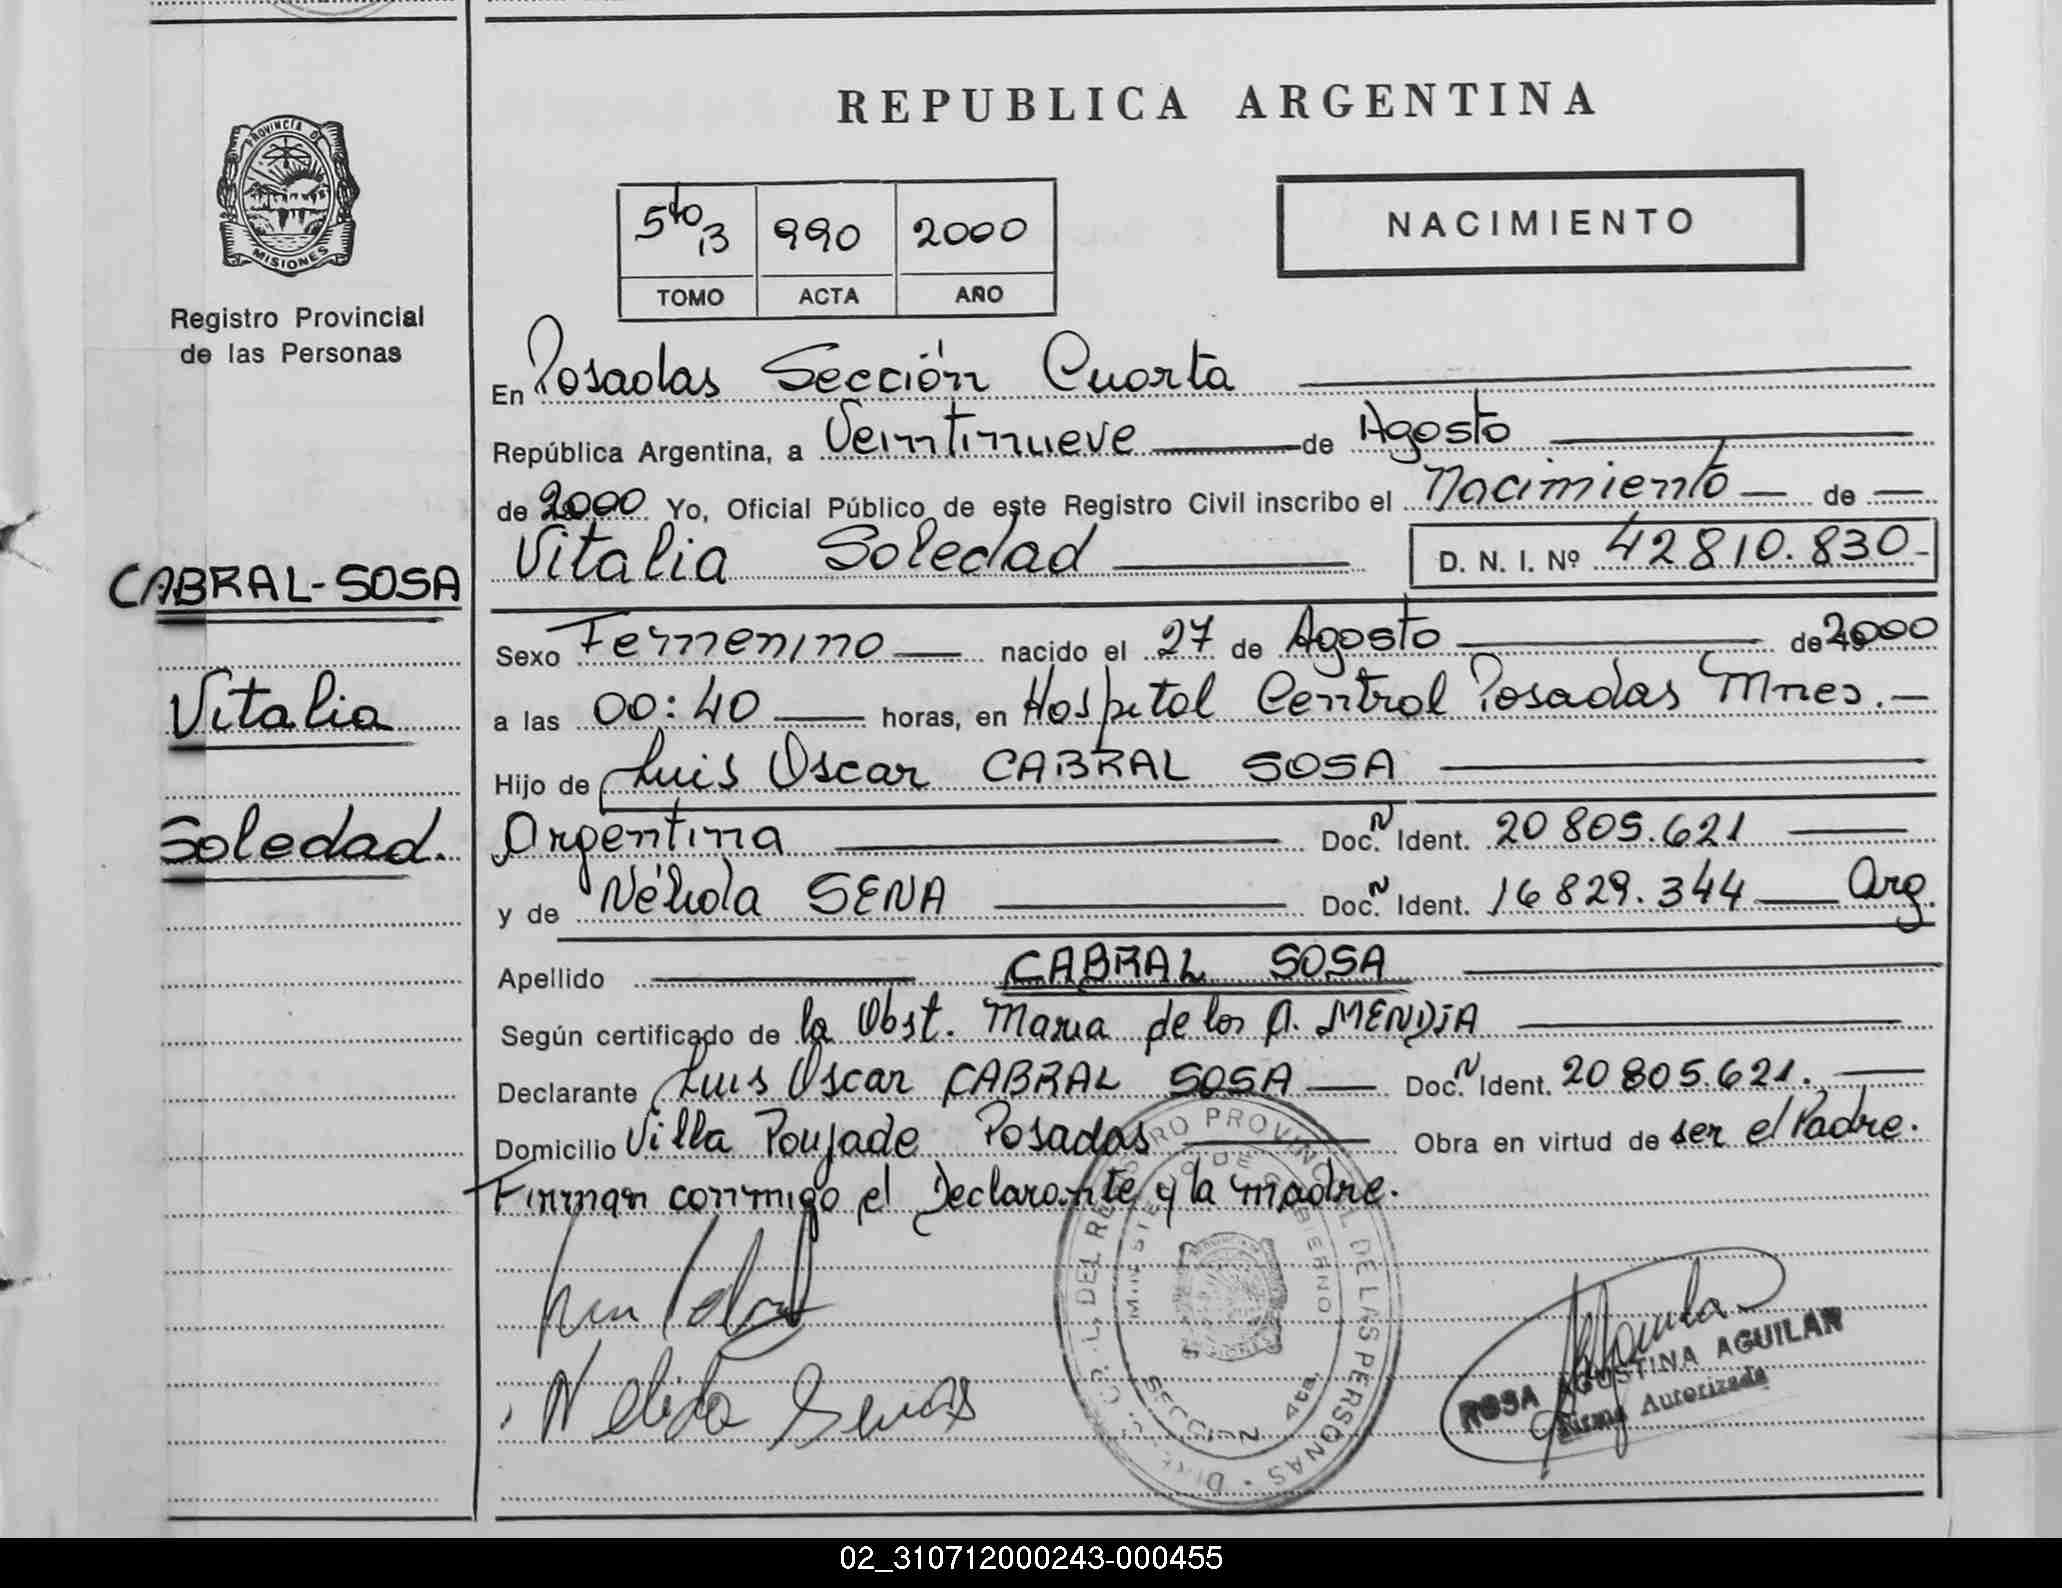 REPUBLICA ARGENTINA
PROVINCIA DE
MISIONES
Registro Provincial
de las Personas
5to 13 990 2000
TOMO ACTA AÑO
NACIMIENTO
En Posadas Sección Cuarta
República Argentina, a Veintinueve de Agosto
de 2000 Yo, Oficial Público de este Registro Civil inscribo el Nacimiento de
Vitalia Soledad D. N. I. Nº 42810.830-
CABRAL-SOSA
Vitalia
Soledad.
Sexo Femenino nacido el 27 de Agosto de 2000
a las 00:40 horas, en Hospital Central Posadas Mnes.-
Hijo de Luis Oscar CABRAL SOSA
Argentina Doc. N Ident. 20 805.621
y de Nélida SENA Doc. N Ident. 16 829.344 Arg.
Apellido CABRAL SOSA
Según certificado de la Obst. Maria de los A. MENDiA
Declarante Luis Oscar CABRAL SOSA Doc. N Ident. 20 805.621.
Domicilio Villa Poujade Posadas Obra en virtud de ser el Padre.
Firman conmigo el Declarante y la madre.
Nelida
DEL REGISTRO PROVINCIAL DE LAS PERSONAS
MINISTERIO DE GOBIERNO
SECCION 4ta.
ROSA AGUSTINA AGUILAR
Firma Autorizada
02_310712000243-000455